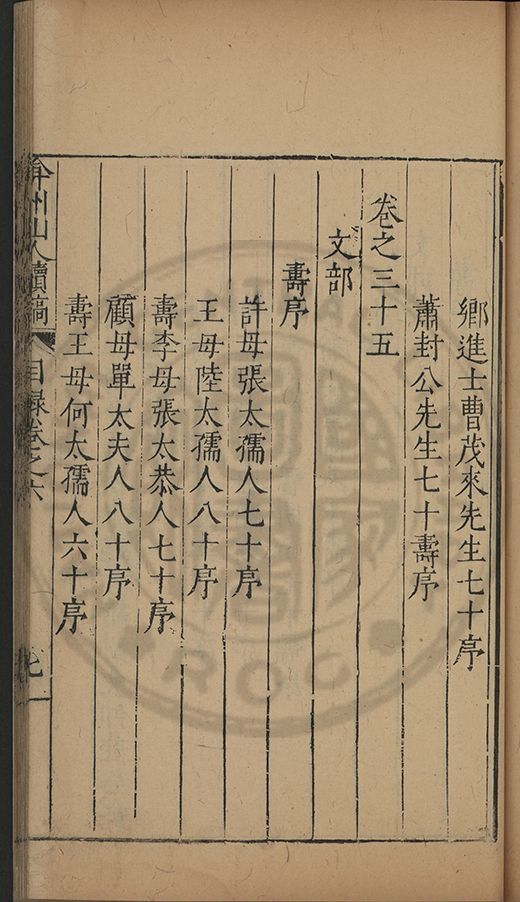 鄉進士曹茂來先生七十序
蕭封公先生七十壽序
卷之三十五
文部
壽序
許母張太孺人七十序
王母陸太孺人八十序
壽李母張太恭人七十序
顧母單太夫人八十序
壽王母何太孺人六十序
弇州山人續稿
目錄卷之六